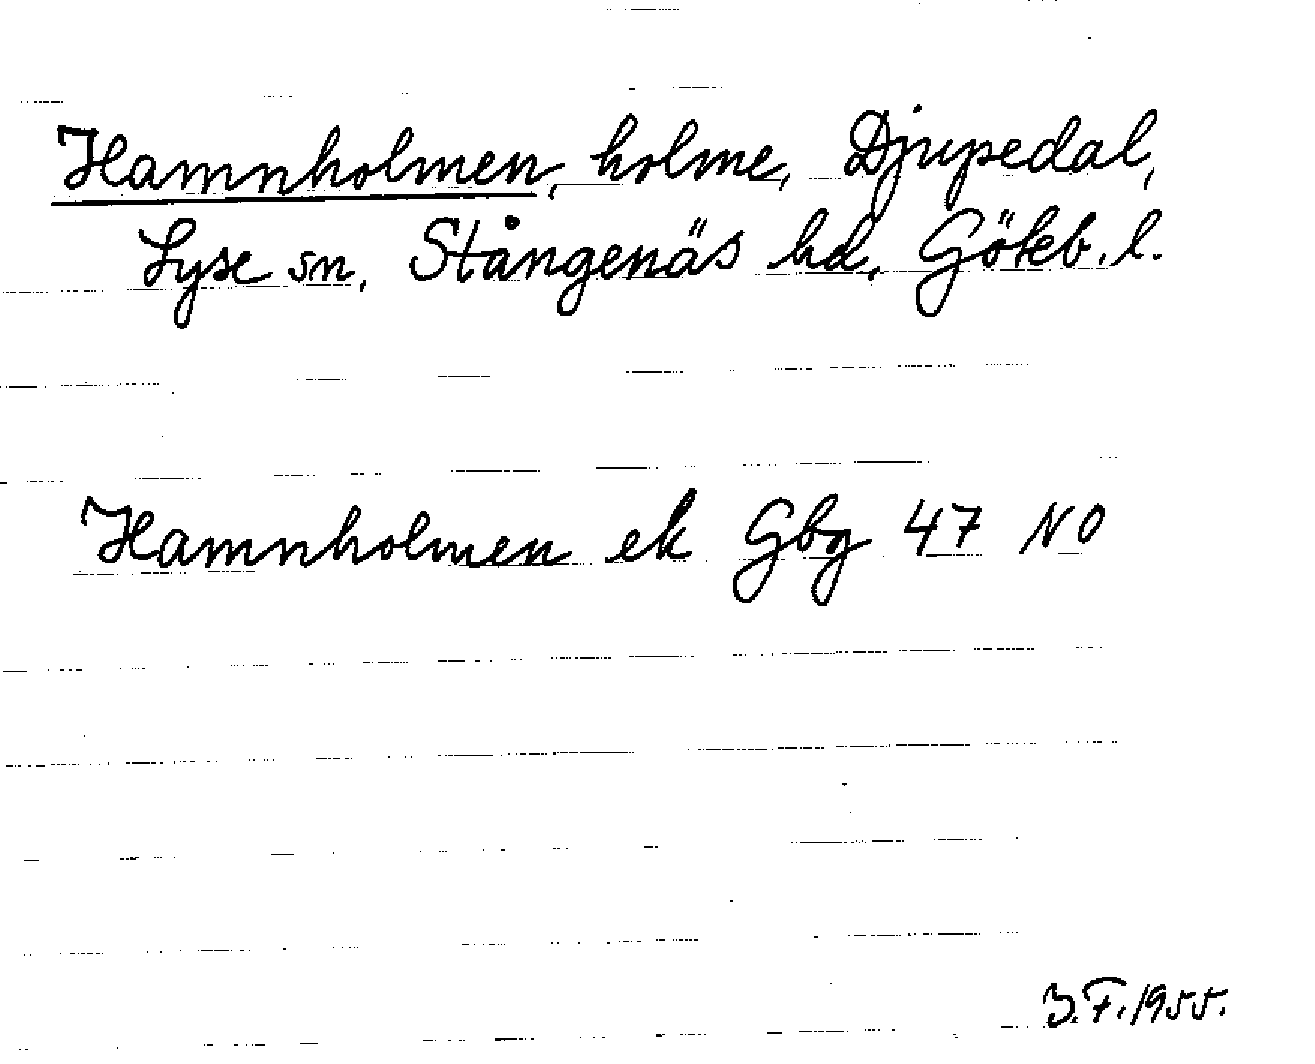 Hamnholmen, holme, Djupedal,
Lyse sn, Stångenäs hd, Göteb. l.
Hamnholmen ek Gbg 47 NO
3.F.1955.